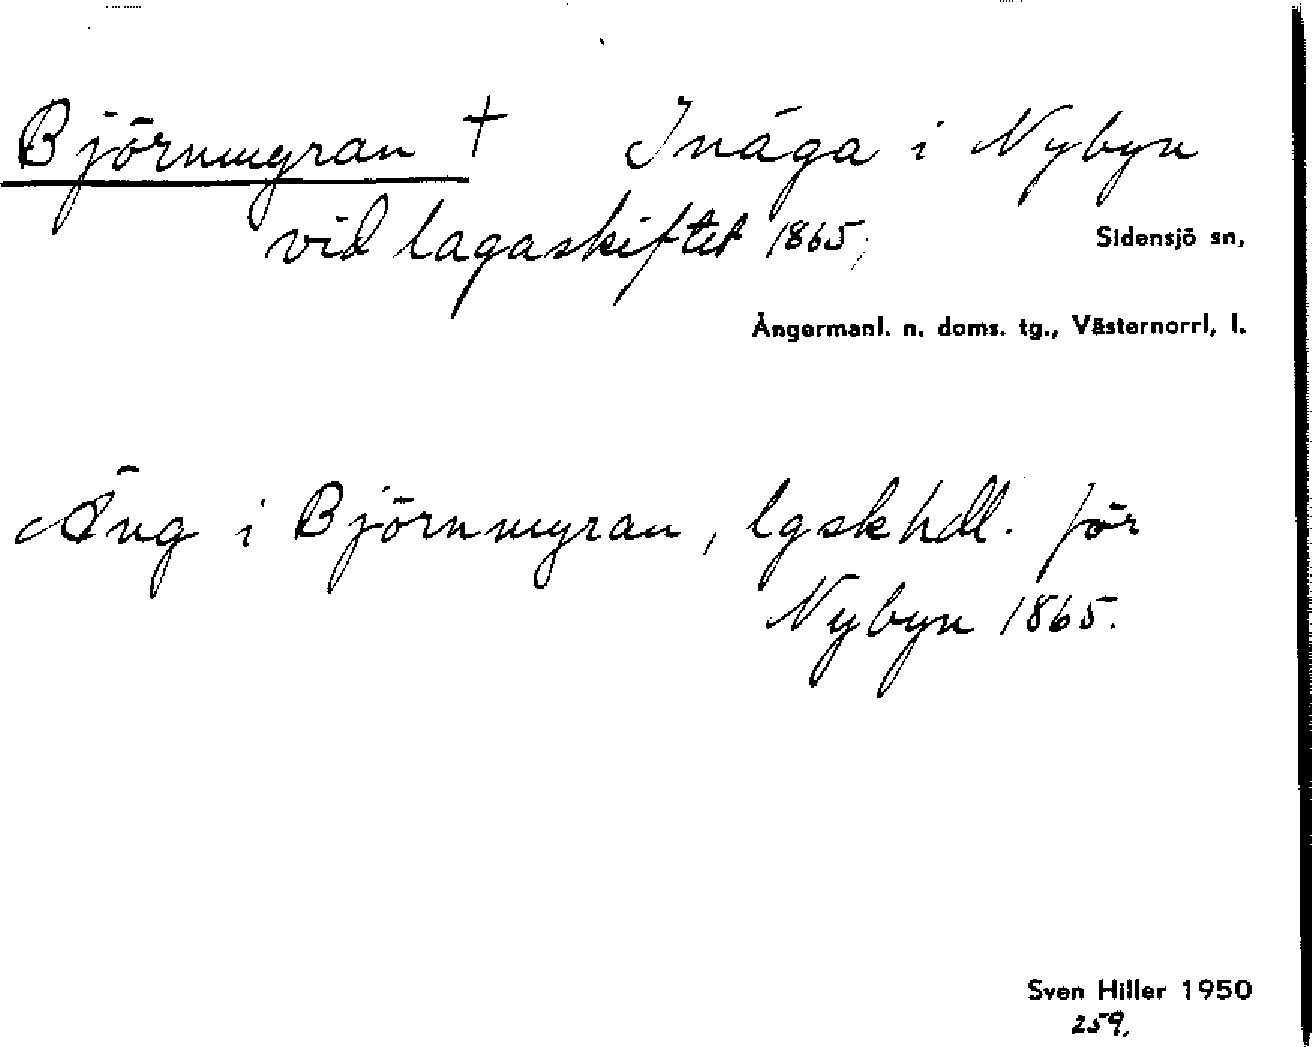 Björnmyran † Inäga i Nybyn
vid lagaskiftet 1865,
Sidensjö sn,
Ångermanl. n. doms. tg., Västernorrl. l.
Äng i Björnmyran, lgskhdl. för
Nybyn 1865.
Sven Hiller 1950
259.